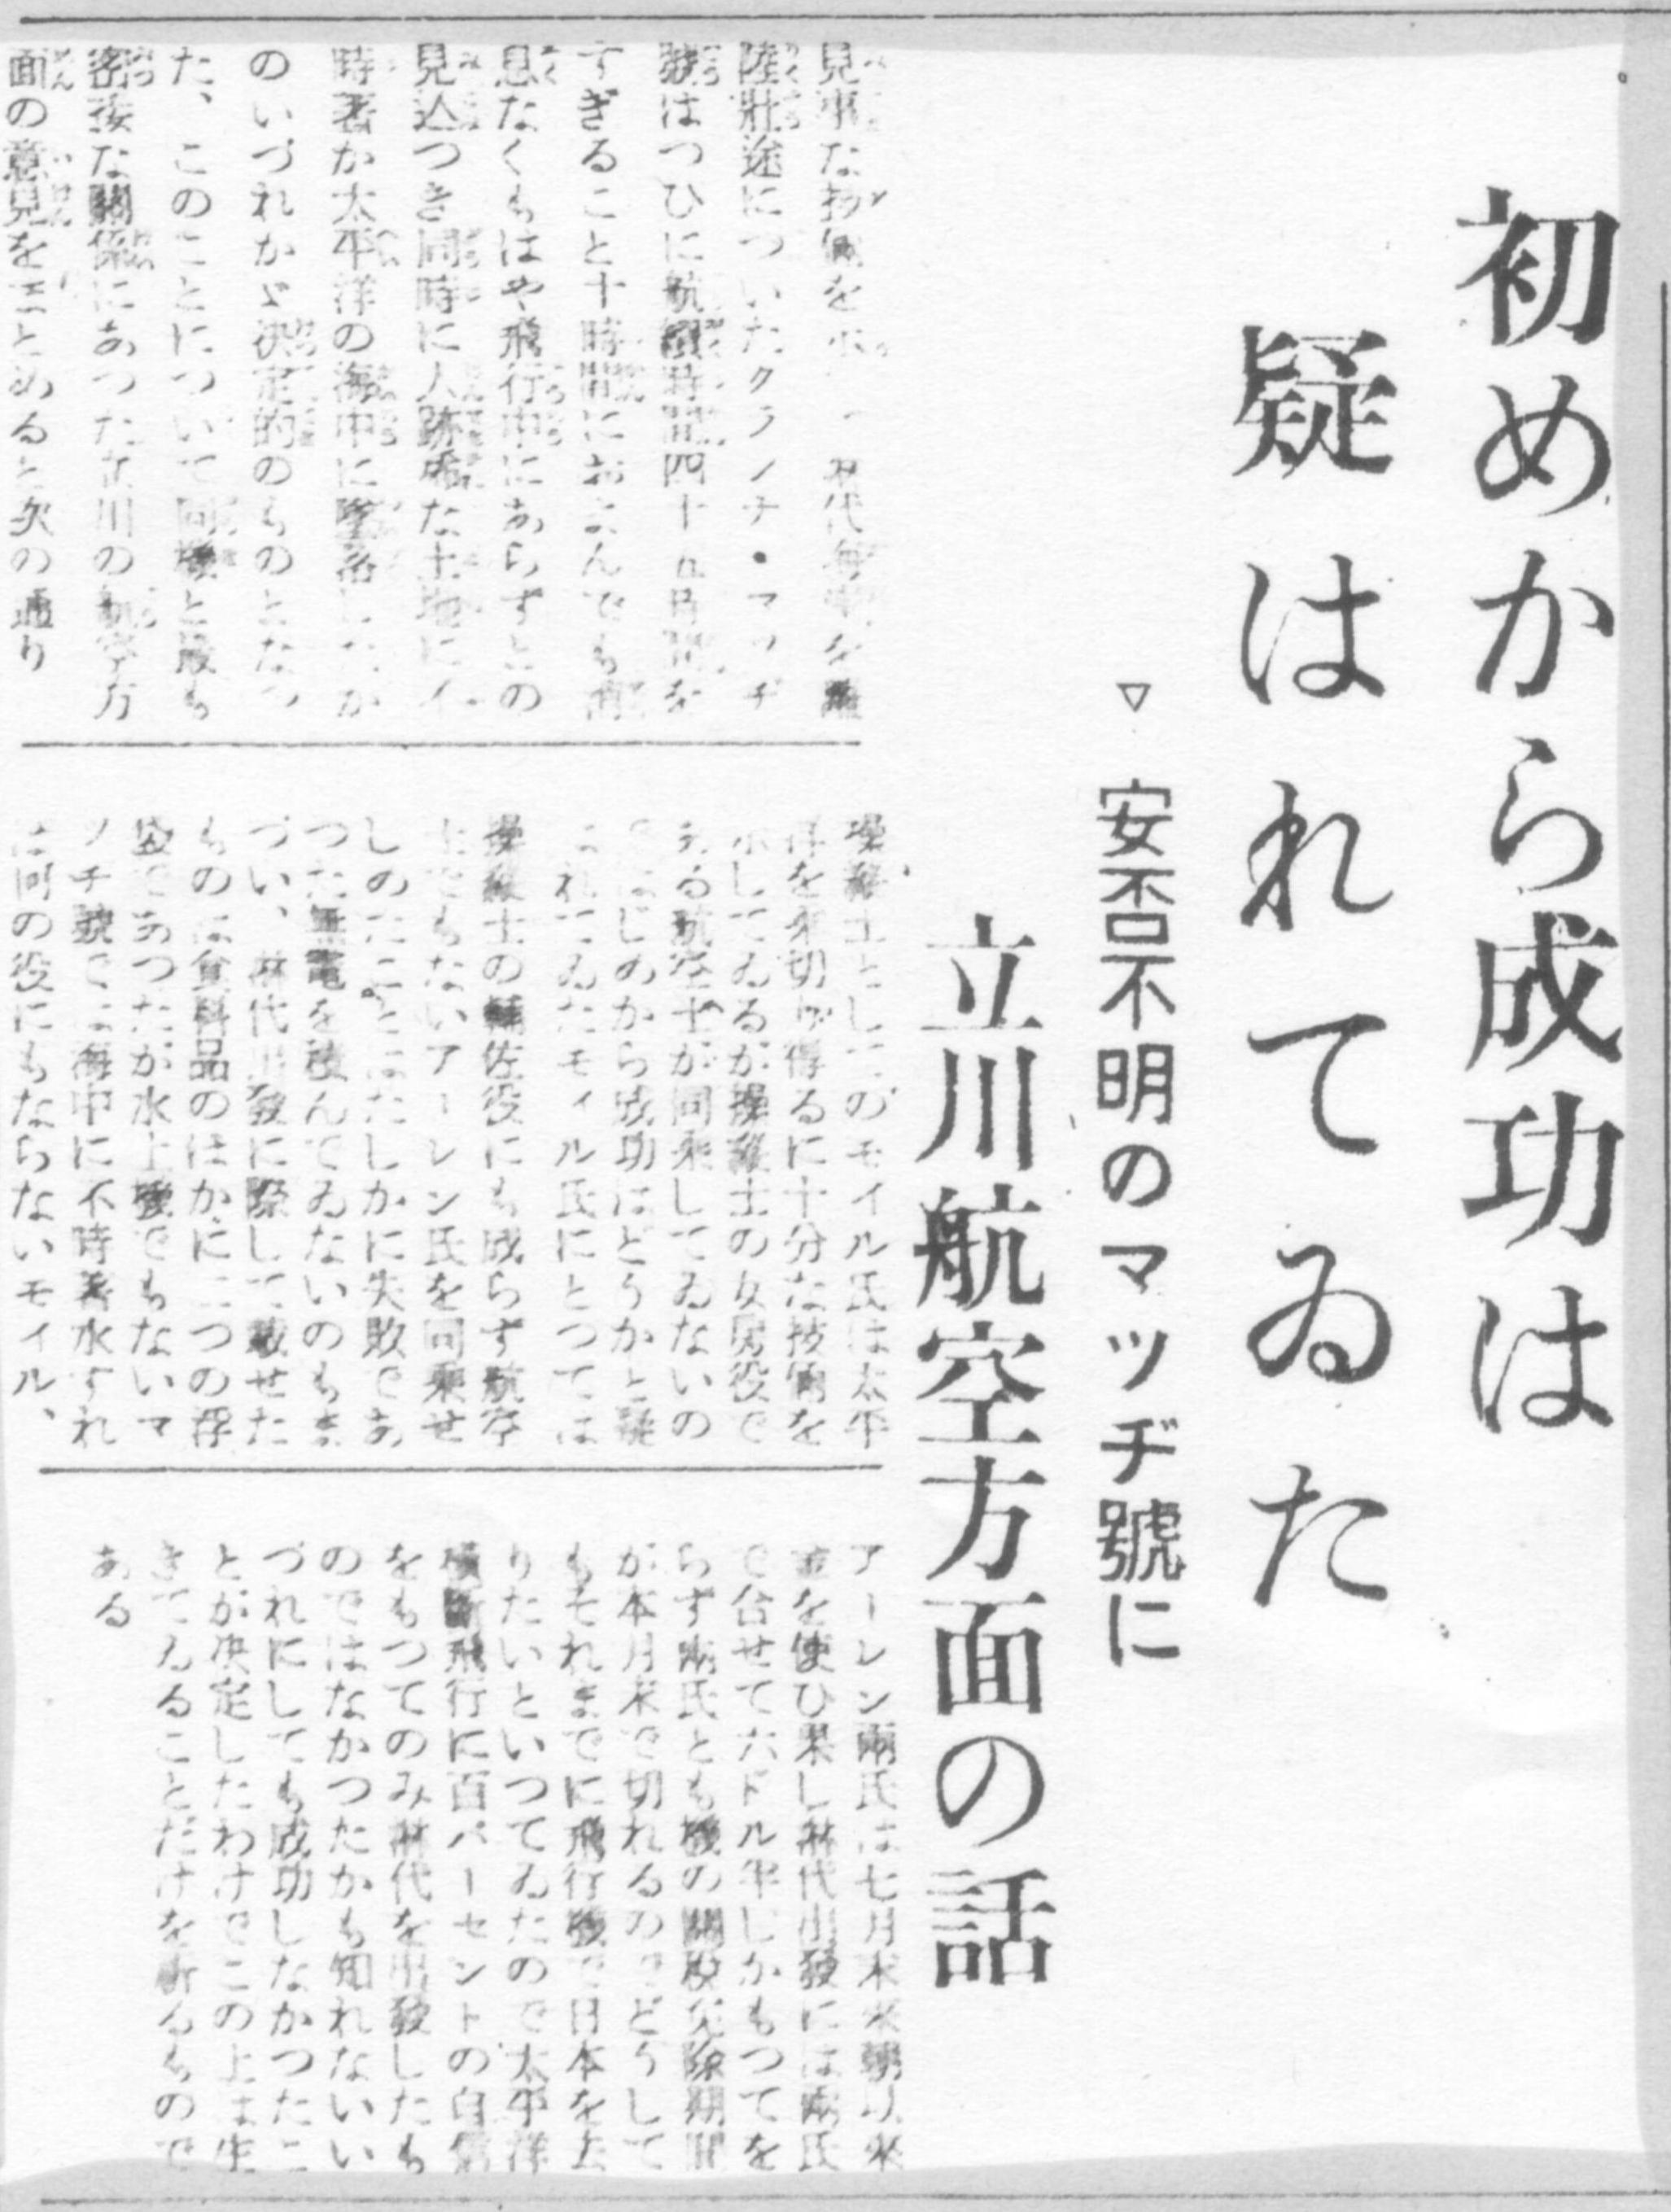 初めから成功は
疑はれてゐた
▽安否不明のマッヂ號に
立川航空方面の話
見事な技倆を示し 代海岸を離
陸壯途についたクラシナ・マッヂ
號はつひに航續時間四十五時間を
すぎること十時間におよんでも消
息なくもはや飛行中にあらずとの
見込つき同時に人跡稀な土地に不
時著か太平洋の海中に墜落したか
のいづれかゞ決定的のものとなつ
た、このことについて同機と最も
密接な關係にあつた立川の航空方
面の意見をまとめると次の通り
操縱士としてのモイル氏は太平
洋を乘切り得るに十分な技倆を
示してゐるが操縱士の女房役で
ある航空士が同乘してゐないの
ではじめから成功はどうかと疑
はれてゐたモイル氏にとつては
操縱士の輔佐役にも成らず航空
士でもないアーレン氏を同乘せ
しめたことはたしかに失敗であ
つた無電を積んでゐないのもま
づい、淋代出發に際して載せた
ものは食料品のほかに二つの浮
袋であつたが水上機でもないマ
ッヂ號では海中に不時著水すれ
は何の役にもならないモイル、
アーレン兩氏は七月末來朝以來
金を使ひ果し淋代出發には兩氏
で合せて六ドル半しかもつてを
らず兩氏とも機の關稅免除期間
が本月末で切れるのでどうして
もそれまでに飛行機で日本を去
りたいといつてゐたので太平洋
橫斷飛行に百パーセントの自信
をもつてのみ淋代を出發したも
のではなかつたかも知れないい
づれにしても成功しなかつたこ
とが決定したわけでこの上は生
きてゐることだけを祈るもので
ある